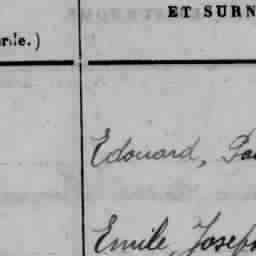 ET SURN
Edouard, Pa
Emile, Joseph